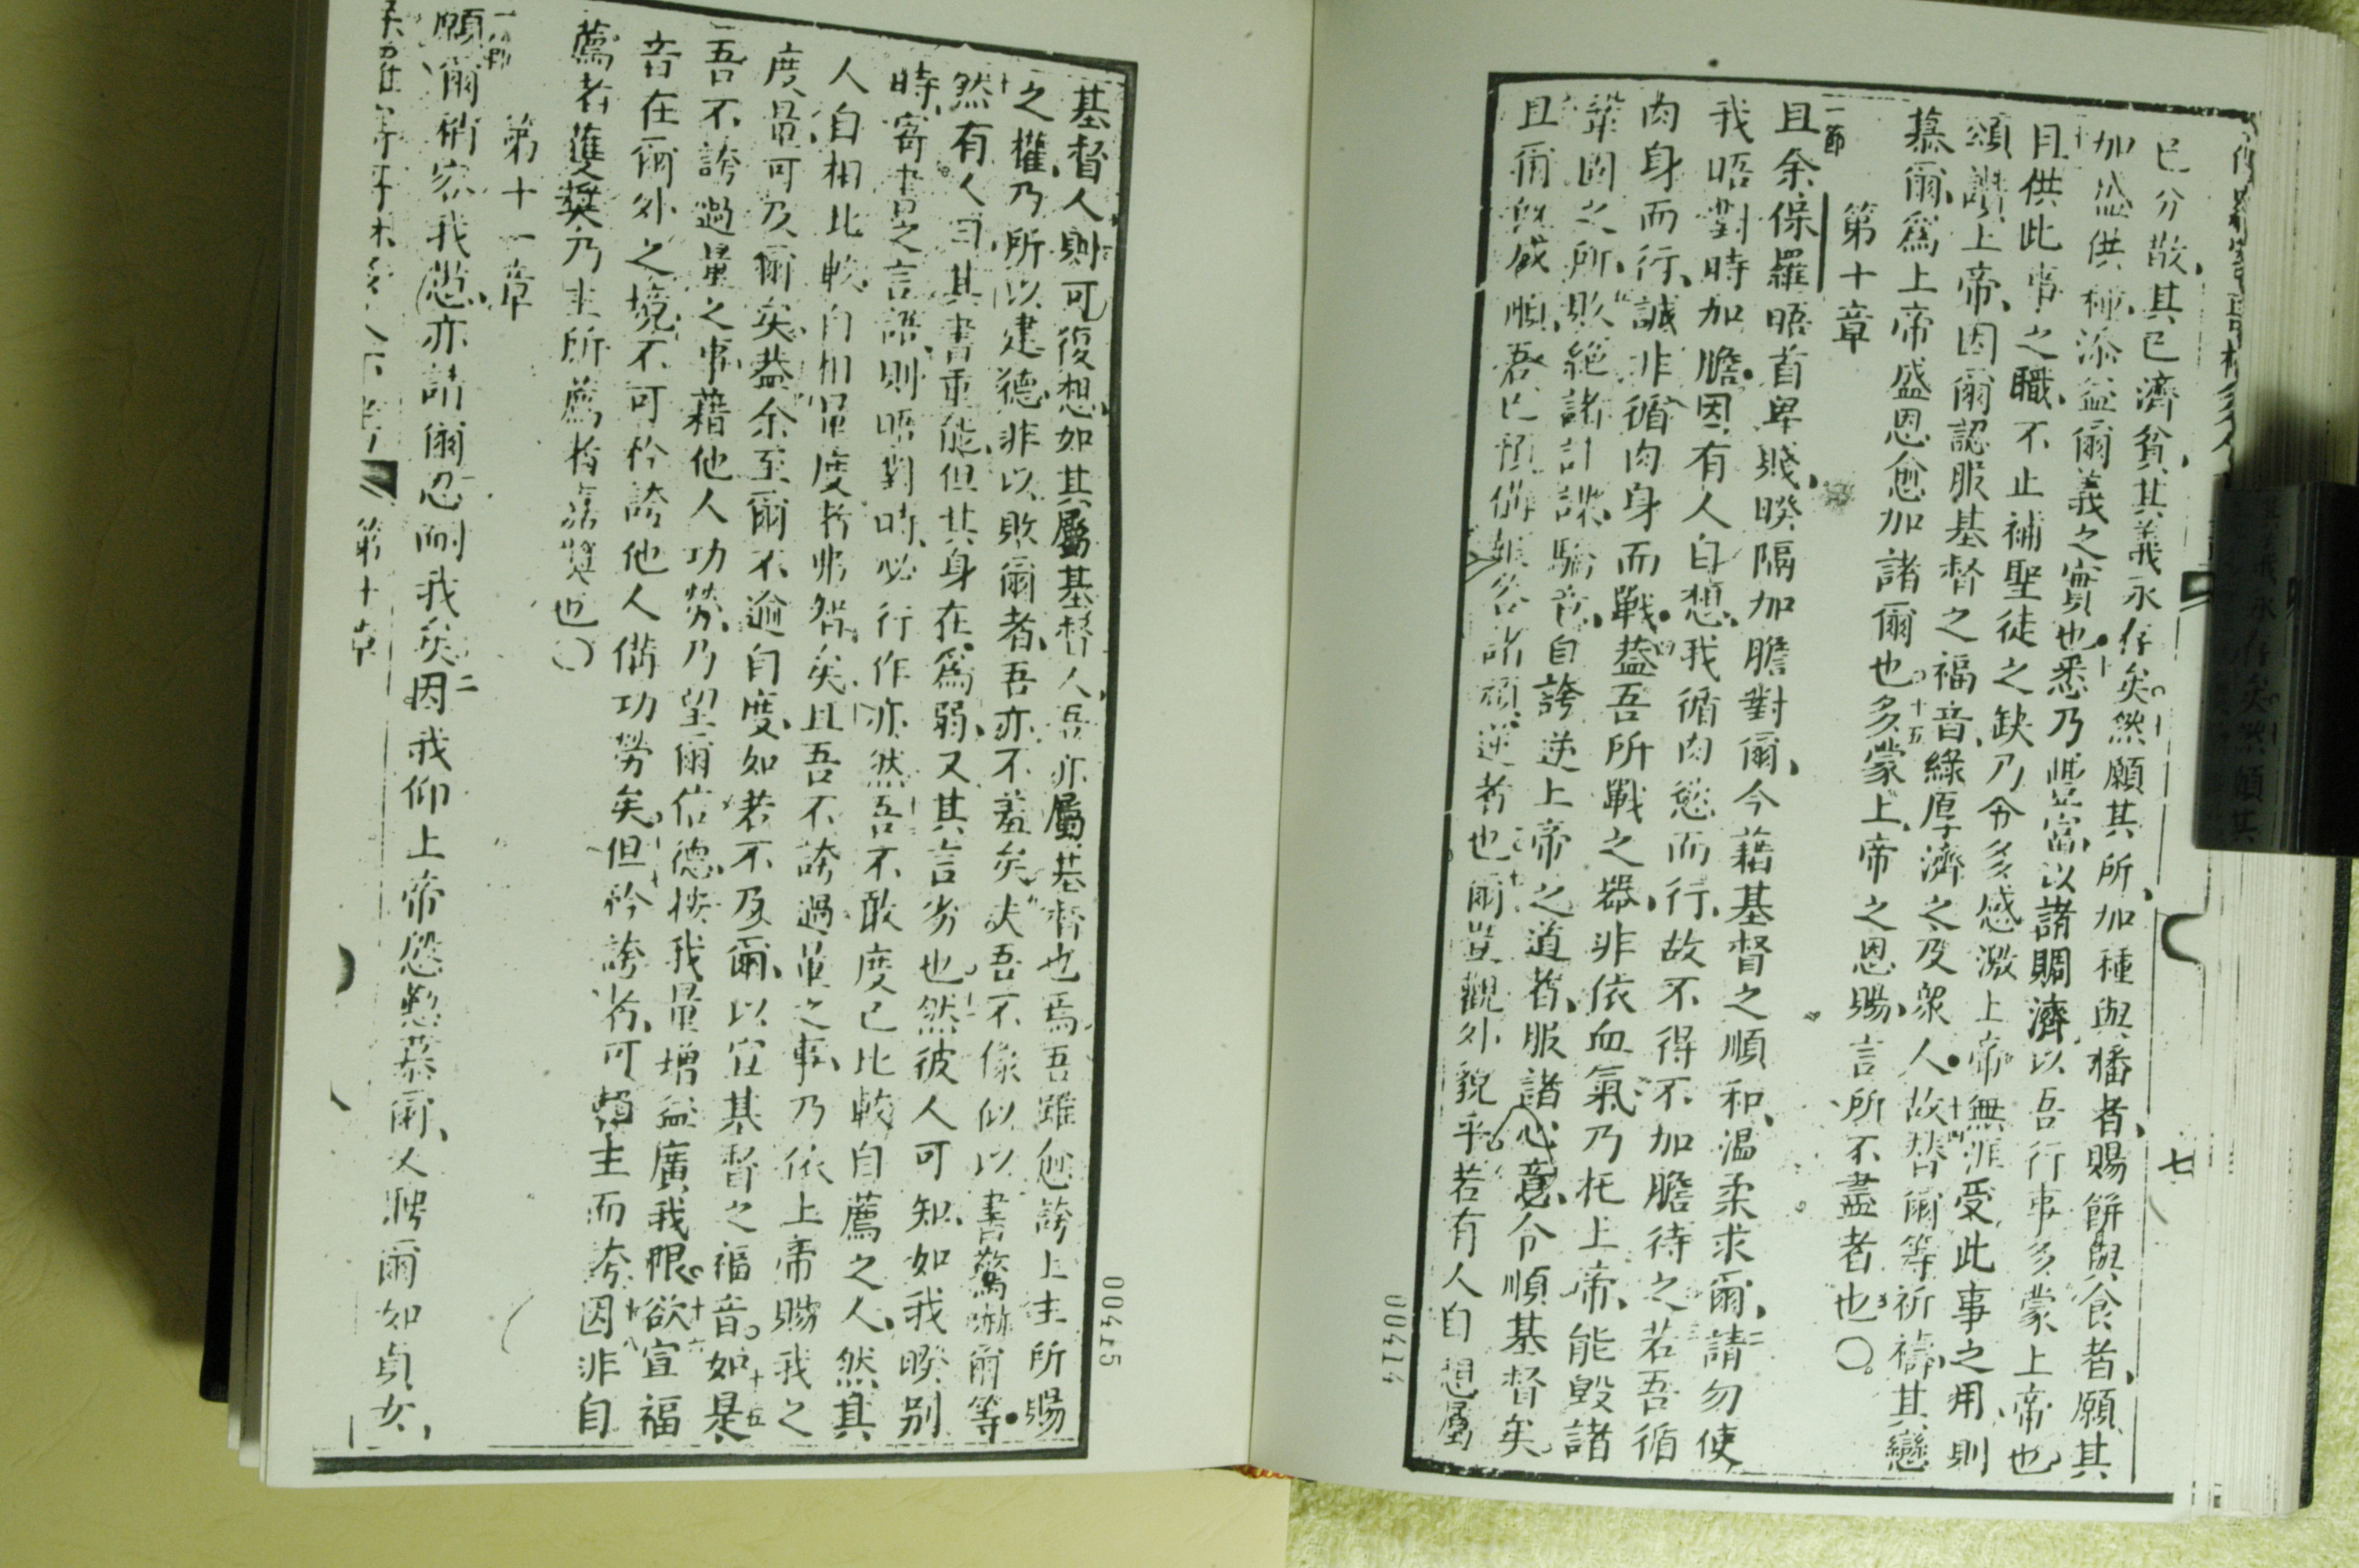 已分散其已濟貧其義永存矣然願其所加種與播者賜餅與食者願其
加盛供種添益爾義之實也悉乃豐富以諸賙濟以吾行事多蒙上帝也
且供此事之職不止補聖徒之缺乃令多感激上帝無涯受此事之用則
頌讚上帝因爾認服基督之福音緣厚濟之及衆人故替爾等祈禱其戀
慕爾爲上帝盛恩愈加諸爾也十五多蒙上帝之恩賜言所不盡者也〇
第十章
一節
且余保羅晤首卑賤暌隔加膽對爾今藉基督之順和温柔求爾請勿使
我晤對時加膽因有人自想我循肉慾而行故不得不加膽待之若吾循
肉身而行誠非循肉身而戰葢吾所戰之器非依血氣乃托上帝能毀諸
鞏固之所敗絕諸計謀驕意自誇逆上帝之道者服諸心意令順基督矣
且爾既成順吾已預備報各諸頑逆者也爾豈觀外貌乎若有人自想屬
七
00414
基督人則可復想如其屬基督人吾亦屬基督也焉吾雖愈誇上主所賜
之權乃所以建德非以敗爾者吾亦不羞矣夫吾不像似以書驚嚇爾等
然有人曰其書重能但其身在爲弱又其言劣也然彼人可知如我暌別
時寄書之言語則晤對時必行作亦然吾不敢度己比較自薦之人然其
人自相比較自相量度者非智矣且吾不誇過量之事乃依上帝賜我之
度量可及爾矣葢余至爾不逾自度如若不及爾以宣基督之福音十五如是
吾不誇過量之事藉他人功勞乃望爾信德按我量增益廣我限十六欲宣福
音在爾外之境不可矜誇他人備功勞矣但矜誇者可賴主而誇十八因非自
薦者獲獎乃主所薦者獲獎也〇
第十一章
一節
願爾稍容我愆亦請爾忍耐我矣二因我仰上帝慇懃慕爾又聘爾如貞女
第十章
00415